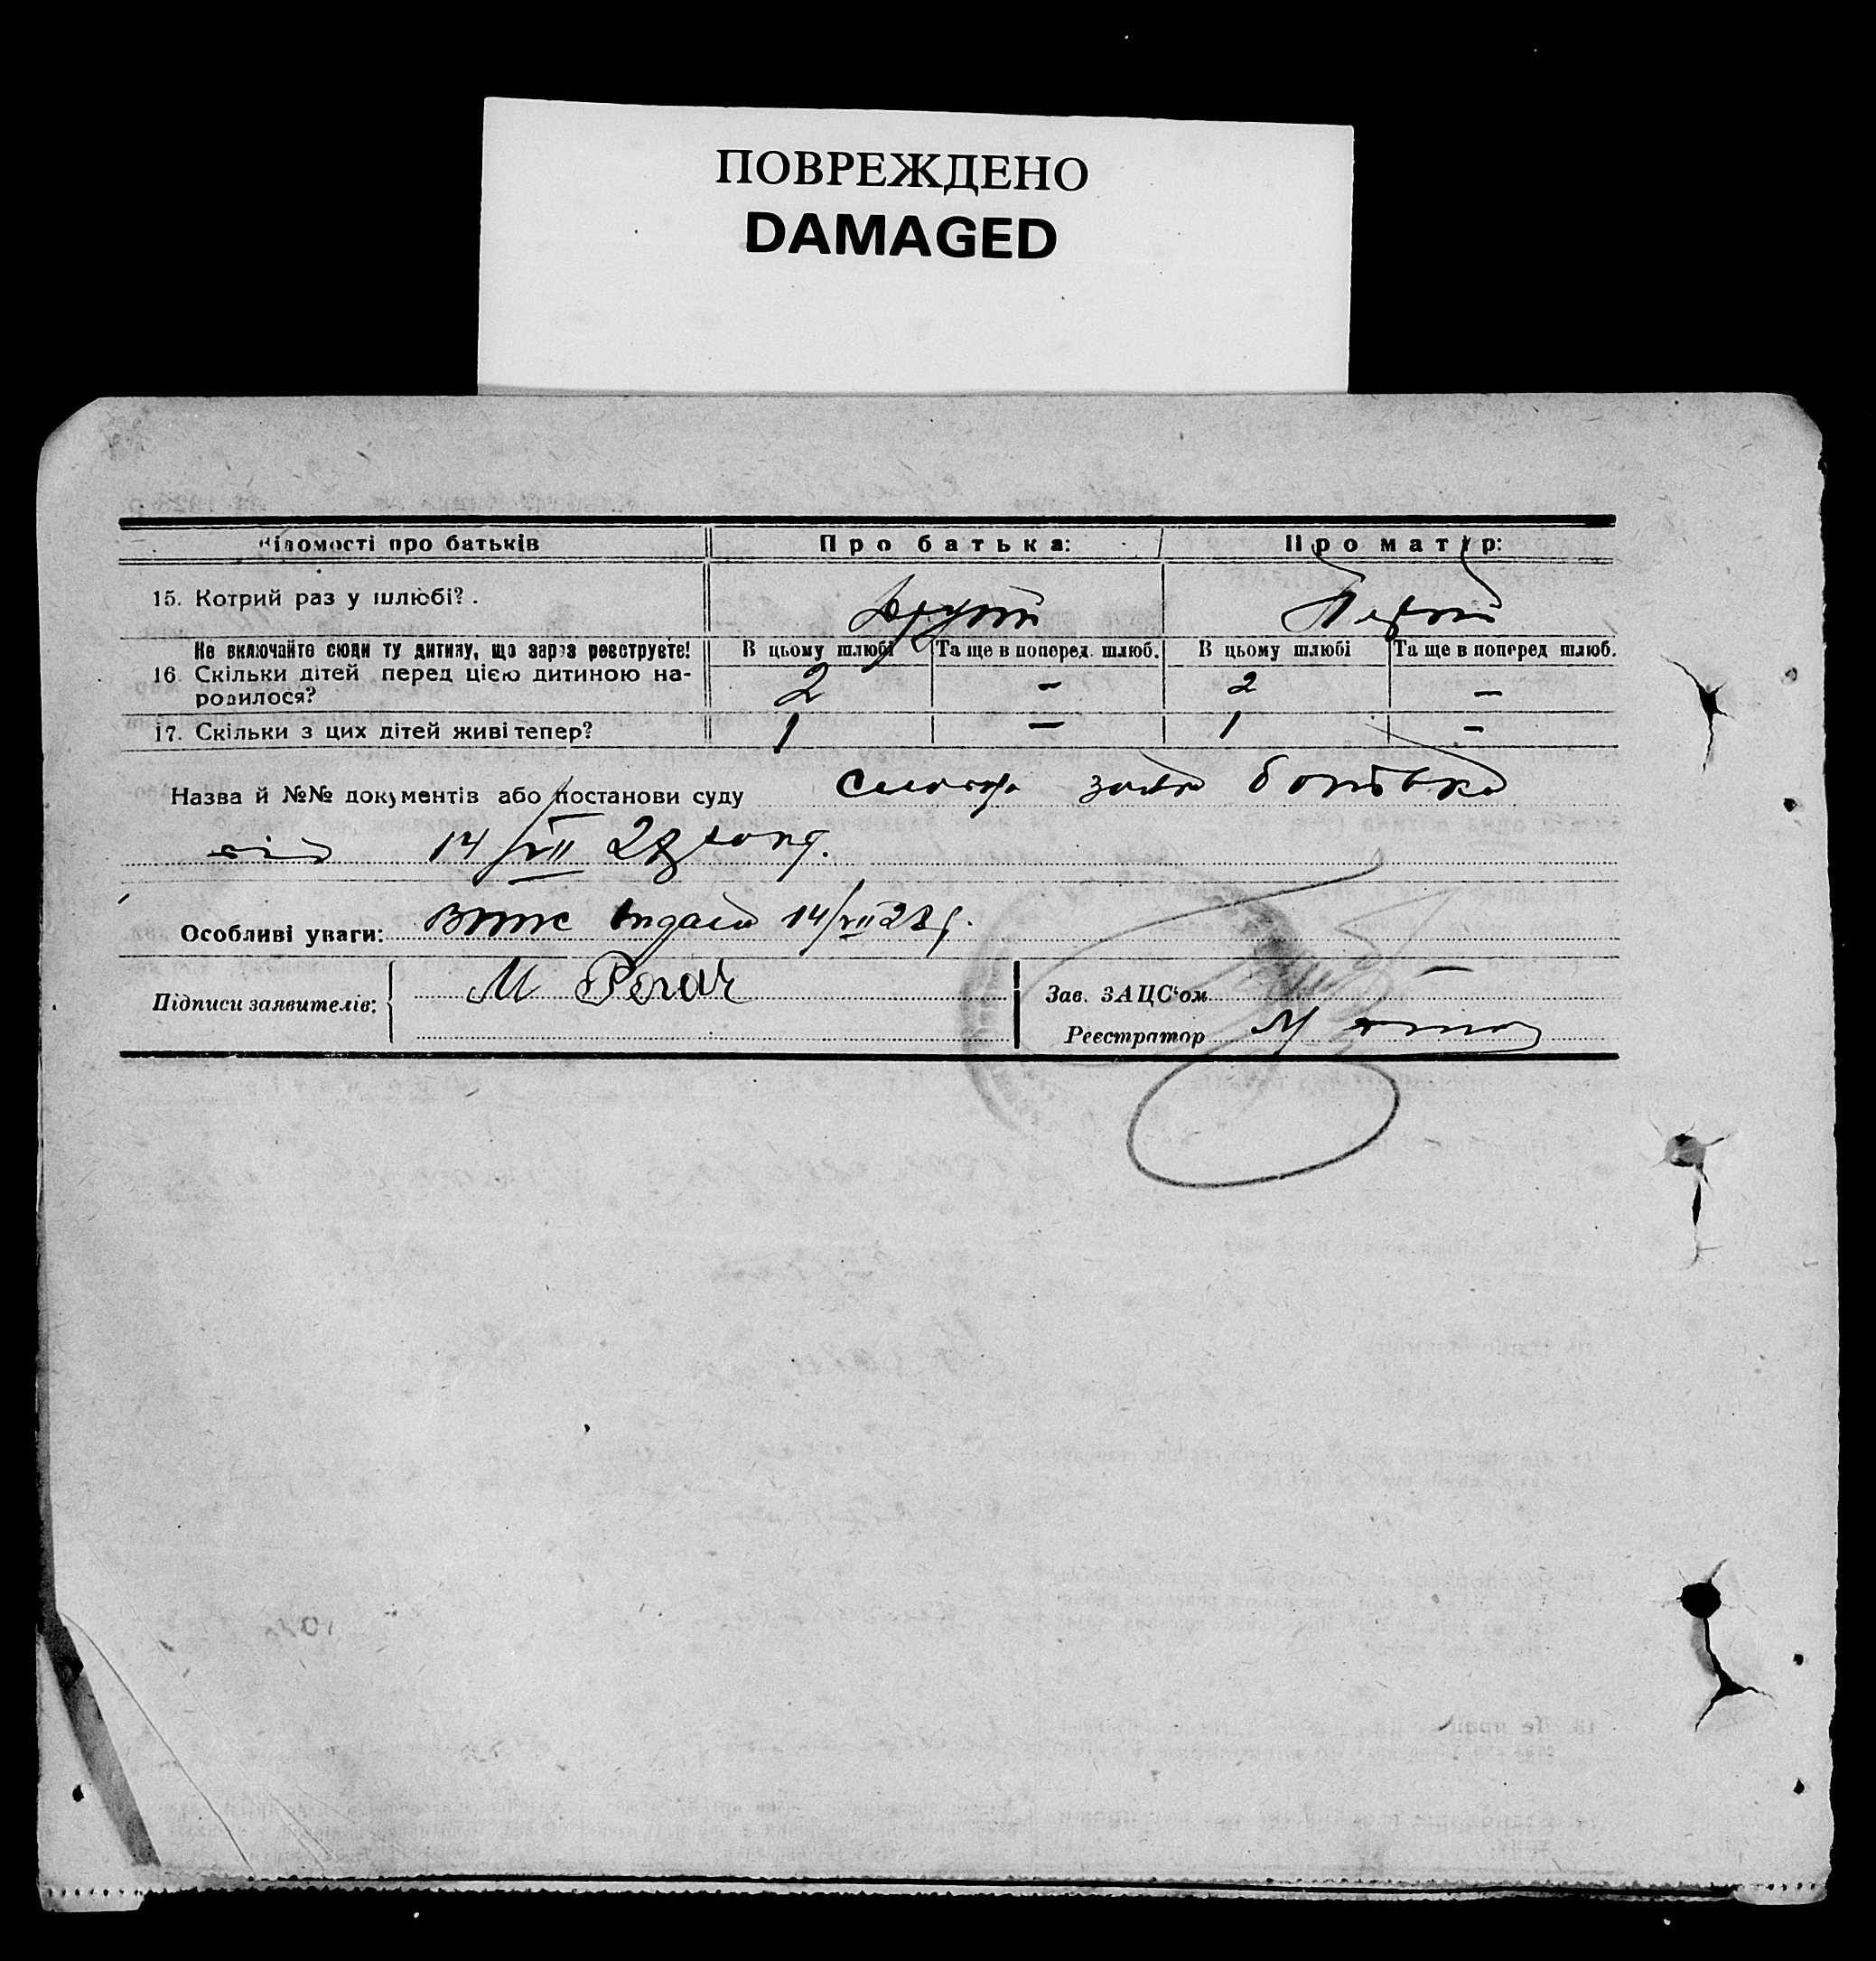 ПОВРЕЖДЕНО
DAMAGED
Відомості про батьків
Про батька:
Про матір:
15. Котрий раз у шлюбі?
Другий
Первий
Не включайте сюди ту дитину, що зараз реєструєте!
В цьому шлюбі
Та ще в попоред. шлюб.
В цьому шлюбі
Та ще в поперед шлюб.
16. Скільки дітей перед цією дитиною на-
родилося?
2
–
2
–
17. Скільки з цих дітей живі тепер?
1
–
1
–
Назва й №№ документів або постанови суду
заява батька
від 14/VII 28
Особливі уваги: Витяг видано 14/VII 28 р.
Підписи заявителів: М
Зав. ЗАЦС'ом
Реєстратор